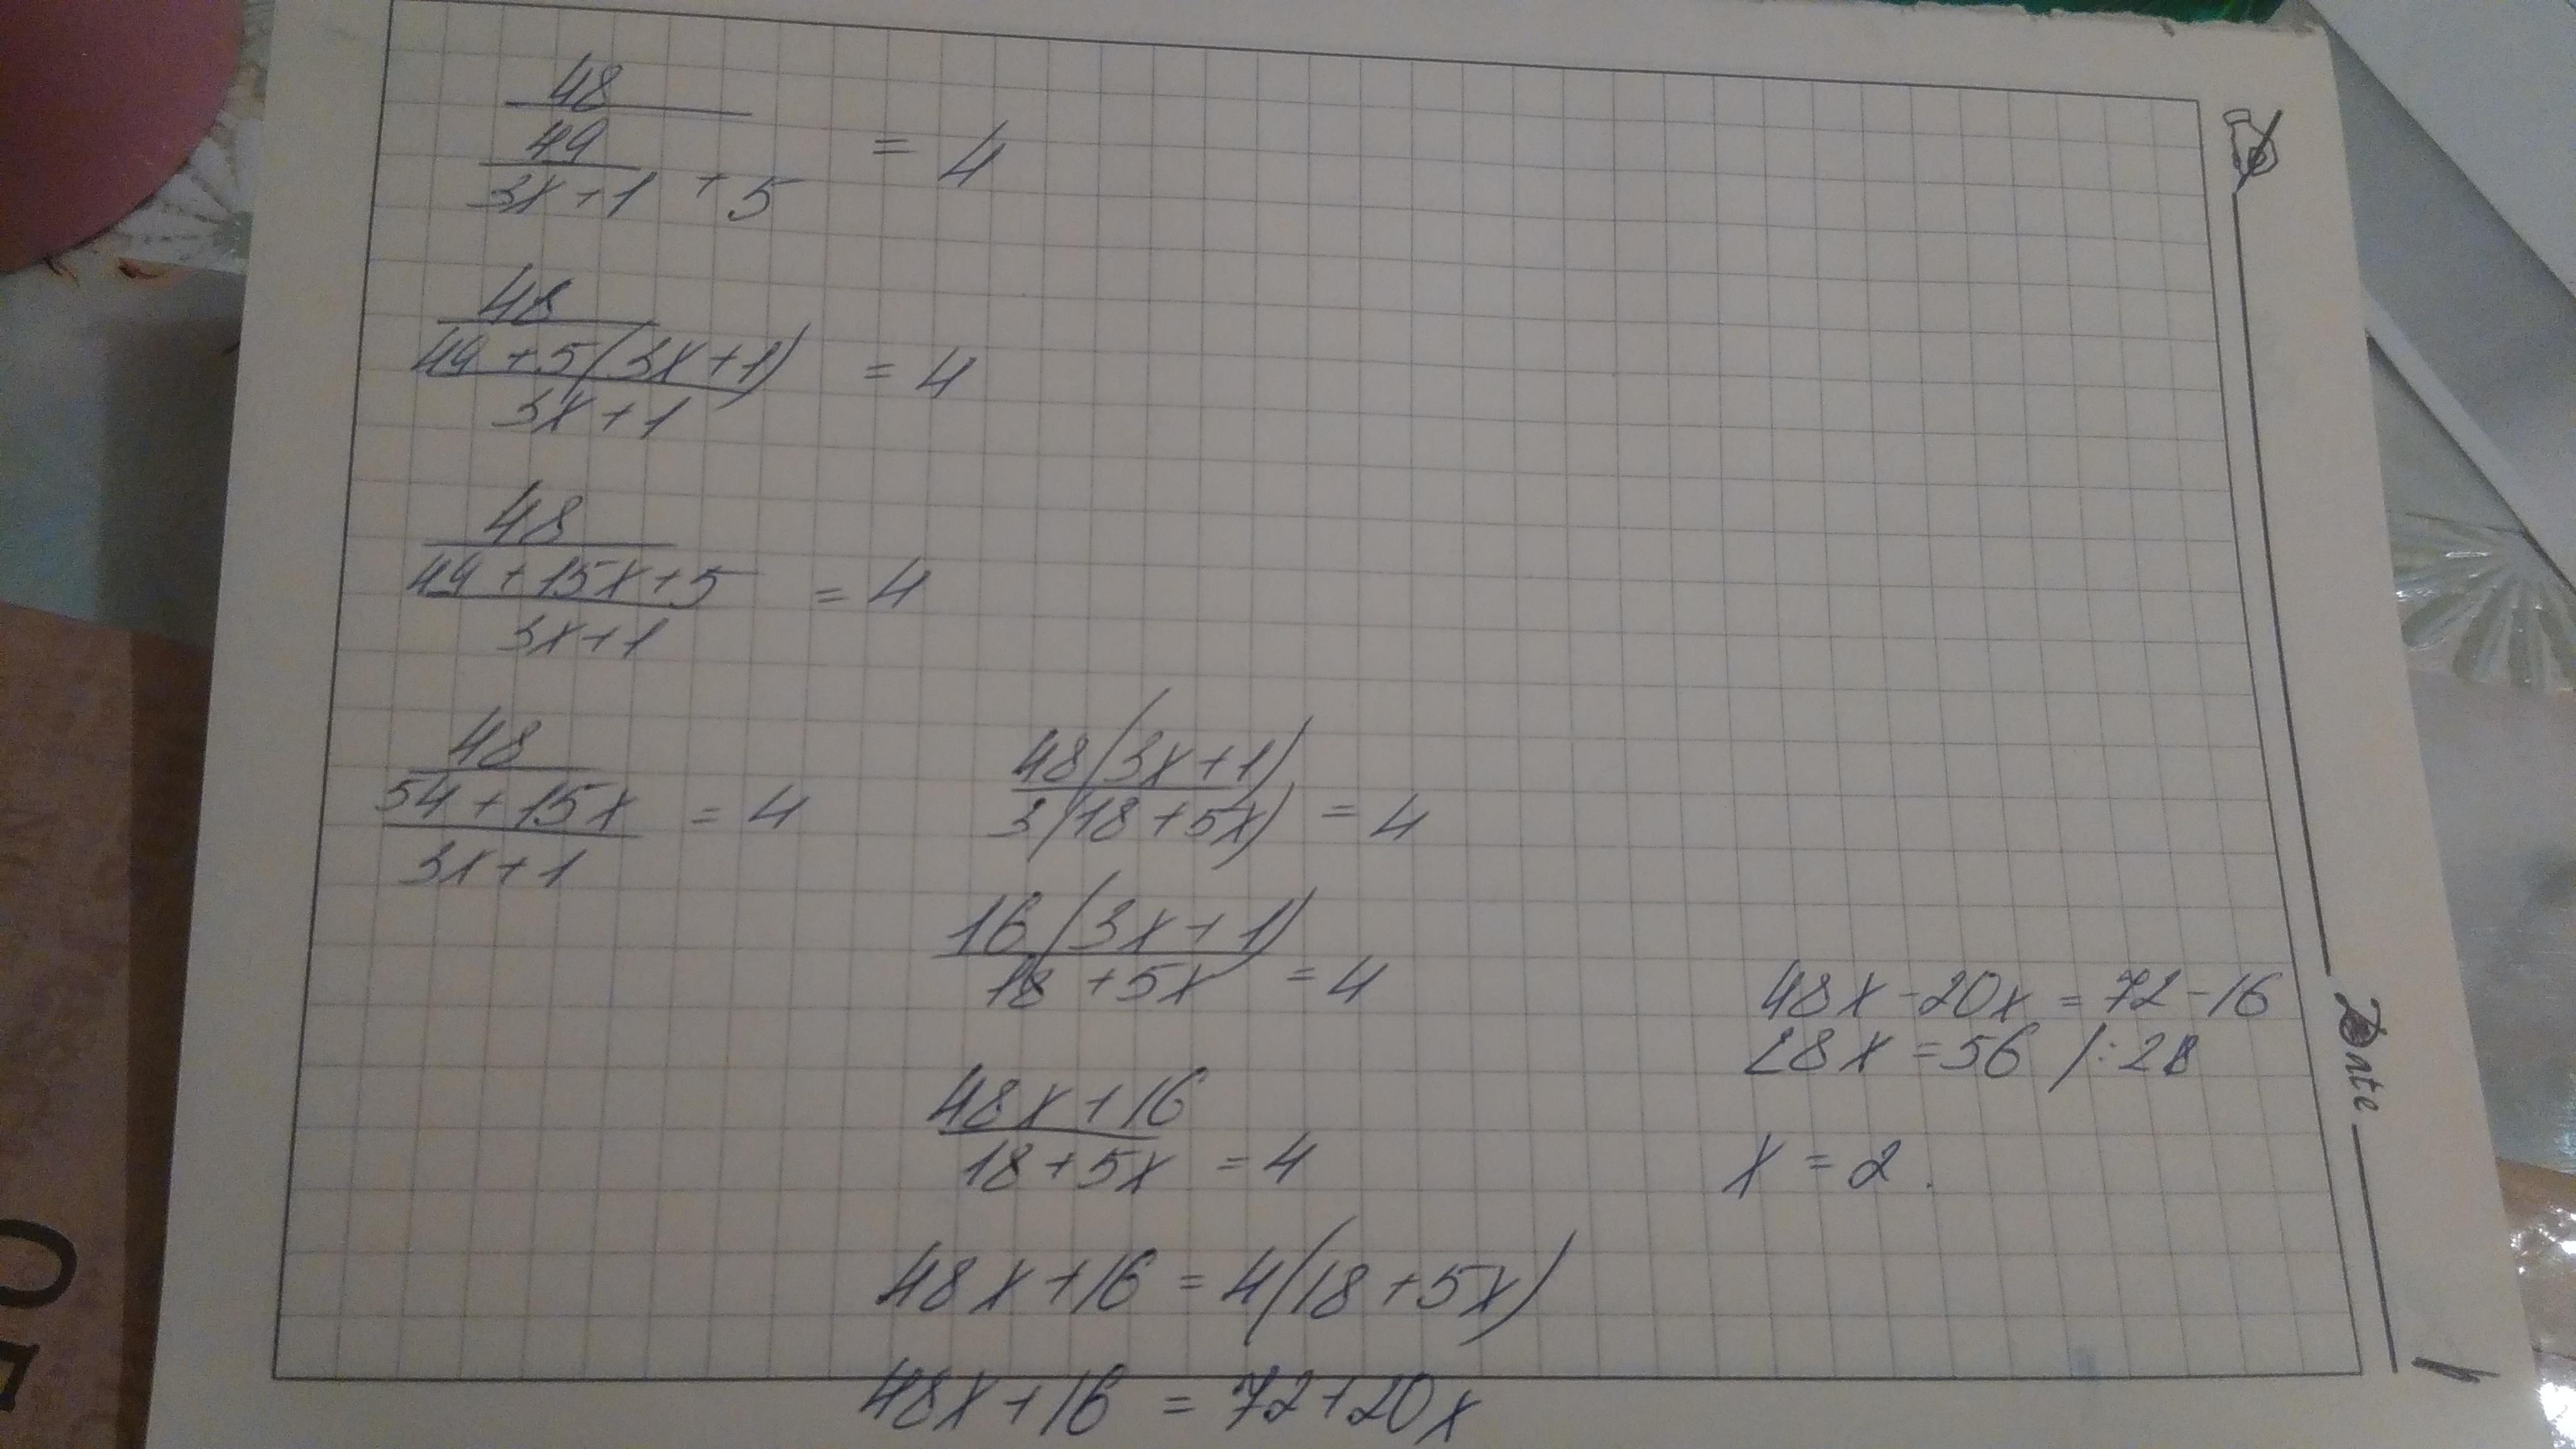 48
49
3x+1 + 5 = 4
48
49+5(3x+1) = 4
3x+1
48
49+15x+5 = 4
3x+1
48
54+15x = 4
3x+1
48(3x+1)
3(18+5x) = 4
16(3x+1)
18+5x = 4
48x+16
18+5x = 4
48x+16 = 4(18+5x)
48x+16 = 72+20x
48x-20x = 72-16
28x = 56 /:28
x = 2.
Date